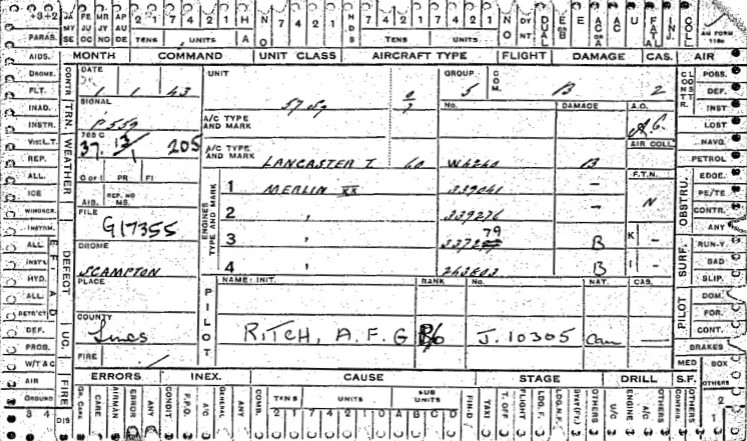 3 2 JA FE MR AP 7 4 2 1 H N 7 4 2 1 N 7 4 2 1 NO DY DUAL E E AC AC U FATAL INJ COL AM FORM
PARAS. MY JU AU DE TENS UNITS A O D S TENS UNITS NT 1180
SE OC NO
AIDS. MONTH COMMAND UNIT CLASS AIRCRAFT TYPE FLIGHT DAMAGE CAS. AIR
DROME. CONTR DATE UNIT GROUP COM. CONSTR. POBS.
FLT. 1 1 43 57.57 5 B 2 DEF.
INAD. TRN. SIGNAL A/C TYPE AND MARK No. DAMAGE A.O. INST
INSTR. P559 A.G. LOST
VIS: L.T. WEATHER 765 C 37. 13/1 205 A/C TYPE AND MARK AIR COLL. NAVG.
REP. LANCASTER T. 60 W4260 B PETROL
ALL. O or I PR FI ENGINES TYPE AND MARK 1 MERLIN XX 339061 – F.T.N. OBSTRU. EDGE.
ICE AIB. REP. NO MS. PE/TE
WINDSCR. FILE 2 " 339276 – N CONTR.
INSTRM. G17355 ANY
ALL DEFECT DROME 3 " 79 B K – SURF. RUN-Y.
INSTS SCAMPTON BAD
HYD. PLACE 4 " 243803 B I – SLIP.
ALL. PILOT NAME: INIT. RANK No. NAT. CAS. PILOT DOM.
RETRCT: COUNTY FOR.
DEF. U/C. Lincs RITCH, A. F. G J. 10305 Can – CONT.
PROB. BRAKES
W/T & C FIRE / MED BOX
AIR FIRE ERRORS INEX. CAUSE STAGE DRILL S.F. OTHERS
GROUND GR. CARE CARE AIRMAN ERROR ANY CONDIT F.P.O. A/C GENERAL ANY CONR. TENS UNITS SUB UNITS FIR-D TAXI T. OFF FLIGHT LDG.F. LDG.N.F. OTHERS U/C ENGINE A/C OTHERS OTHERS 2
3 4 D19 2 1 7 4 2 1 0 A B C D 1